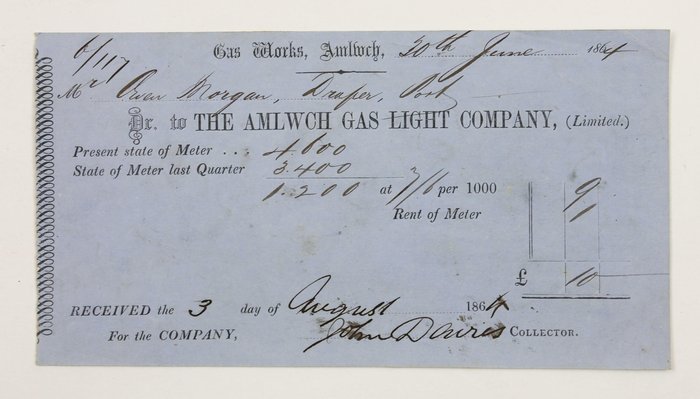 6/117
Gas Works, Amlwch, 30th June 1864
Mr Owen Morgan, Draper, Port
Dr. to THE AMLWCH GAS LIGHT COMPANY, (Limited.)
Present state of Meter ... 4600
State of Meter last Quarter 3.400
1.200 at 7/6 per 1000 9
Rent of Meter 1
£ 10
RECEIVED the 3 day of August 1864
For the COMPANY, John Davies COLLECTOR.